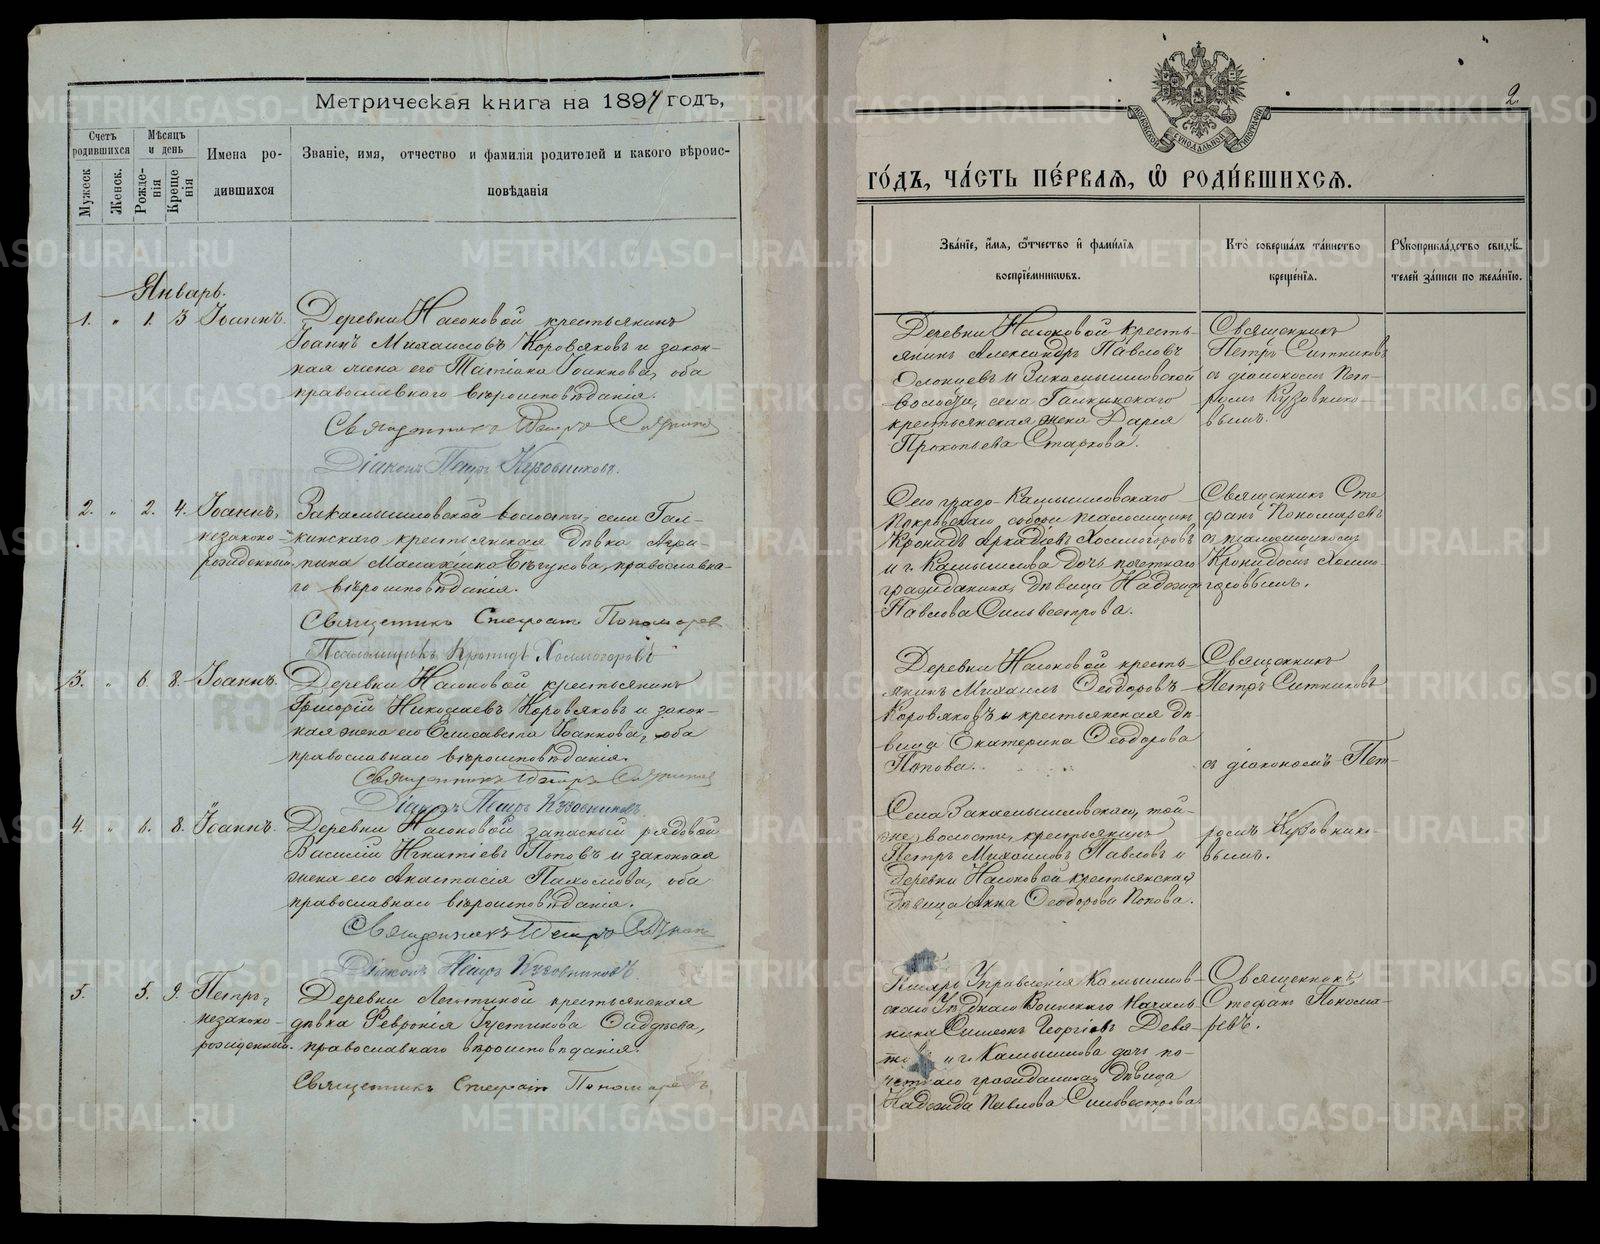 Метрическая книга на 1894 годъ,
Счетъ родившихся
Мѣсяцъ и день
Мужеск
Женск.
Рожденія
Крещенія
Имена родившихся
Званіе, имя, отчество и фамилія родителей и какого вѣроисповѣданія
Январь.
1. " 1. 3 Іоаннъ.
Деревни Насоновой крестьянинъ
Іоаннъ Михаиловъ Коровяковъ и закон-
ная жена его Татіана Іоаннова, оба
православнаго вѣроисповѣданія.
Священникъ Петръ Ситников
Діаконъ Петръ Кузовниковъ.
2. " 2. 4. Іоаннъ,
незаконо-
рожденный.
Закамышловской волости, села Гал-
кинскаго крестьянская дѣвка Агри-
пина Малахіина Бѣгунова, православна-
го вѣроисповѣданія.
Священникъ Стефанъ Пономарев
Псаломщикъ Кронидъ Холмогоровъ
3. " 6. 8. Іоаннъ.
Деревни Насоновой крестьянинъ
Григорій Николаевъ Коровяковъ и закон-
ная жена его Елисавета Іоаннова, оба
православнаго вѣроисповѣданія.
Священникъ Петръ Ситников
Діаконъ Петръ Кузовниковъ
4. " 6. 8. Іоаннъ.
Деревни Насоновой запасный рядовой
Василій Игнатіевъ Поповъ и законная
жена его Анастасія Пахомова, оба
православнаго вѣроисповѣданія.
Священникъ Петръ Ситников
Діаконъ Петръ Кузовниковъ
5. 5. 9. Петръ,
незаконо-
рожденный.
Деревни крестьянская
дѣвка Февронія Іустинова
православнаго вѣроисповѣданія.
Священникъ Стефанъ Пономаревъ
2
МОСКОВСКОЙ СѴНОДАЛЬНОЙ ТИПОГРАФІИ
го́дъ, ча́сть пе́рваѧ, ѡ҆ роди́вшихсѧ.
Зва́нїе, и҆́мѧ, ѻ҆́тчество и҆ фами́лїѧ воспрїе́мникѡвъ.
Кто̀ соверша́лъ та́инство креще́нїѧ.
Рꙋкоприкла́дство свидѣ́телей за́писи по жела́нїю.
Деревни Насоновой кресть-
янинъ Александръ Павловъ
Олонцевъ и Закамышловской
волости, села Галкинскаго
крестьянская жена Дарія
Прокопьева Старкова.
Священникъ
Петръ Ситниковъ
съ діакономъ Пет-
ромъ Кузовнико-
вымъ.
градо-Камышловскаго
Покровскаго собора псаломщикъ
Кронидъ Аркадіевъ Холмогоровъ
и г. Камышлова дочь почетнаго
гражданина, дѣвица Надежда
Павлова Сильвестрова.
Священникъ Сте
фанъ Пономаревъ
съ псаломщикомъ
Кронидомъ Холмо-
горовымъ.
Деревни Насоновой кресть-
янинъ Михаилъ Ѳеодоровъ
Коровяковъ и крестьянская дѣ-
вица Екатерина Ѳеодорова
Попова.
Священникъ
Петръ Ситниковъ
съ діакономъ Пет-
ромъ Кузовнико-
вымъ.
Села Закамышловскаго, той-
же волости, крестьянинъ
Петръ Михаиловъ Павловъ и
деревни Насоновой крестьянская
дѣвица Анна Ѳеодорова Попова.
Писарь Управленія Камышлов-
скаго Уѣзднаго Воинскаго Началь-
ника Симеонъ Георгіевъ Девя-
и г. Камышлова дочь по-
четнаго гражданина, дѣвица
Надежда Павлова Сильвестрова
Священникъ
Стефанъ Понома-
ревъ.
METRIKI.GASO-URAL.RU